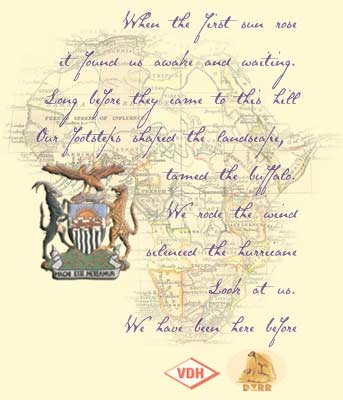 When the first sun rose
it found us awake and waiting.
Long before they came to this hill
Our footsteps shaped the landscape,
tamed the buffalo.
We rode the wind
silenced the hurricane
Look at us.
We have been here before
VDH
DZRR